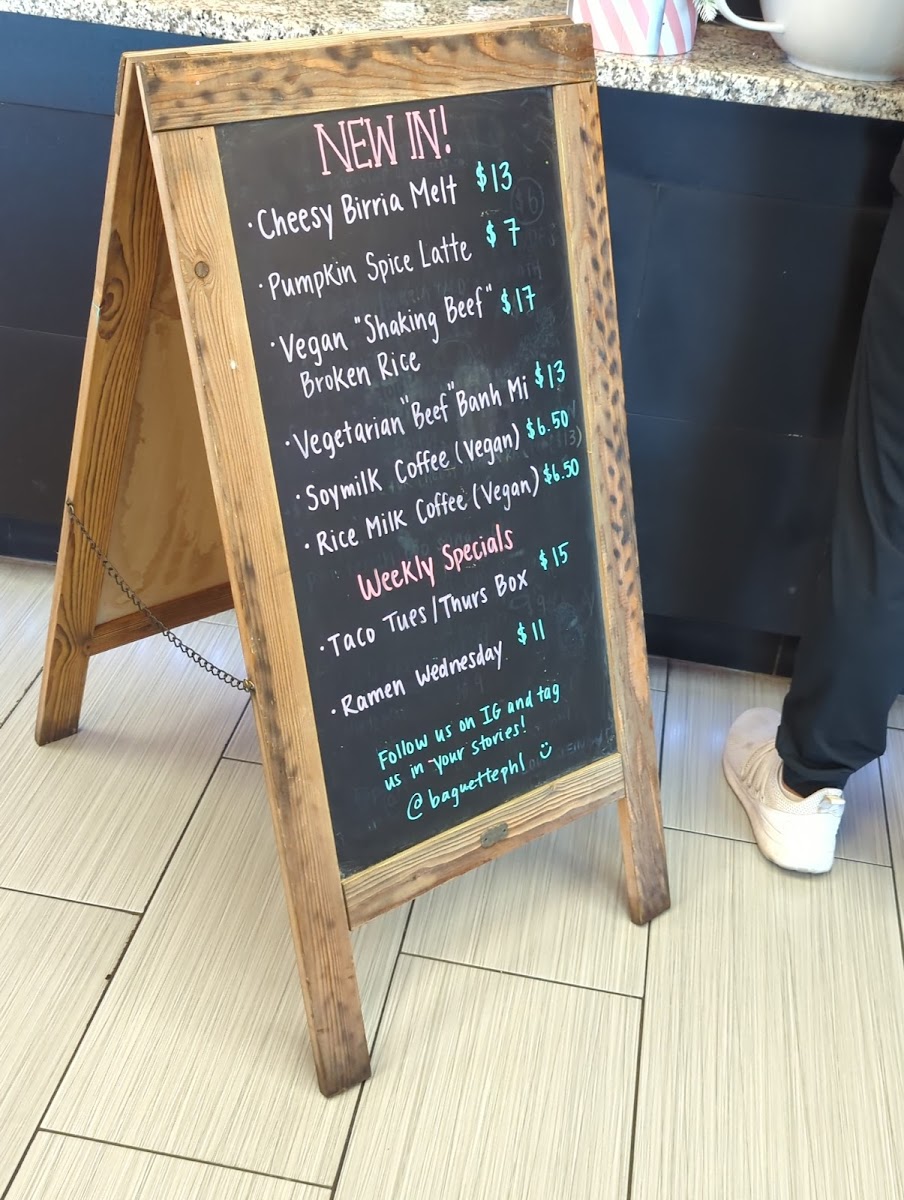 NEW IN!
· Cheesy Birria Melt $13
· Pumpkin Spice Latte $7
· Vegan "Shaking Beef" $17
Broken Rice
· Vegetarian "Beef" Banh Mi $13
· Soymilk Coffee (Vegan) $6.50
· Rice Milk Coffee (Vegan) $6.50
Weekly Specials
· Taco Tues/Thurs Box $15
· Ramen Wednesday $11
Follow us on IG and tag
us in your stories!
@baguettephl